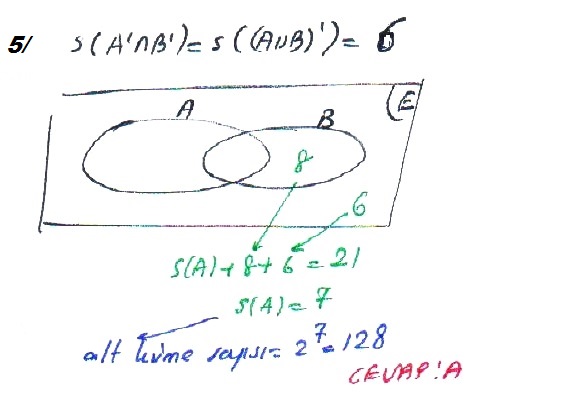 5/ s(A'∩B') = s((A∪B)') = 6
A
B
E
8
6
s(A) + 8 + 6 = 21
s(A) = 7
alt küme sayısı = 2^7 = 128
CEVAP: A